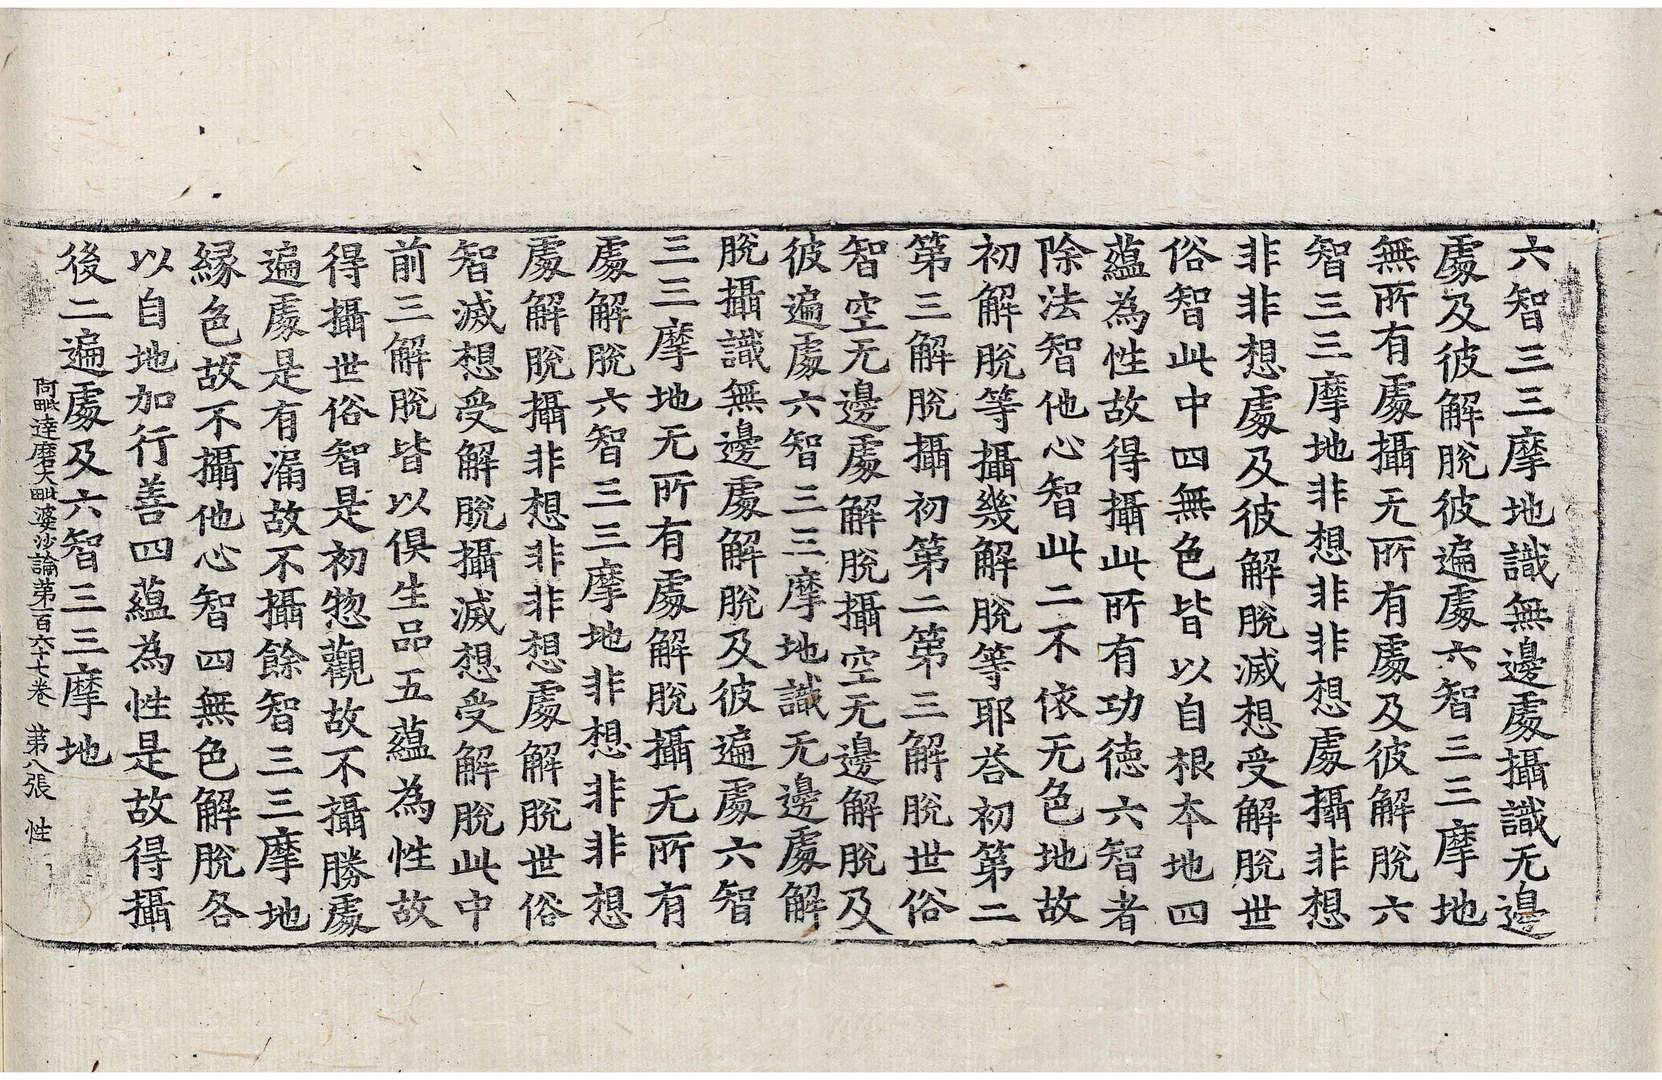 六智三三摩地識無邊處攝識无邊
處及彼解脫彼遍處六智三三摩地
無所有處攝无所有處及彼解脫六
智三三摩地非想非非想處攝非想
非非想處及彼解脫滅想受解脫世
俗智此中四無色皆以自根本地四
蘊為性故得攝此所有功德六智者
除法智他心智此二不依无色地故
初解脫等攝幾解脫等耶荅初第二
第三解脫攝初第二第三解脫世俗
智空无邊處解脫攝空无邊解脫及
彼遍處六智三三摩地識无邊處解
脫攝識無邊處解脫及彼遍處六智
三三摩地无所有處解脫攝无所有
處解脫六智三三摩地非想非非想
處解脫攝非想非非想處解脫世俗
智滅想受解脫攝滅想受解脫此中
前三解脫皆以俱生品五蘊為性故
得攝世俗智是初惣觀故不攝勝處
遍處是有漏故不攝餘智三三摩地
緣色故不攝他心智四無色解脫各
以自地加行善四蘊為性是故得攝
後二遍處及六智三三摩地
阿毗達磨大毗婆沙論第一百六十七卷 第八張 性